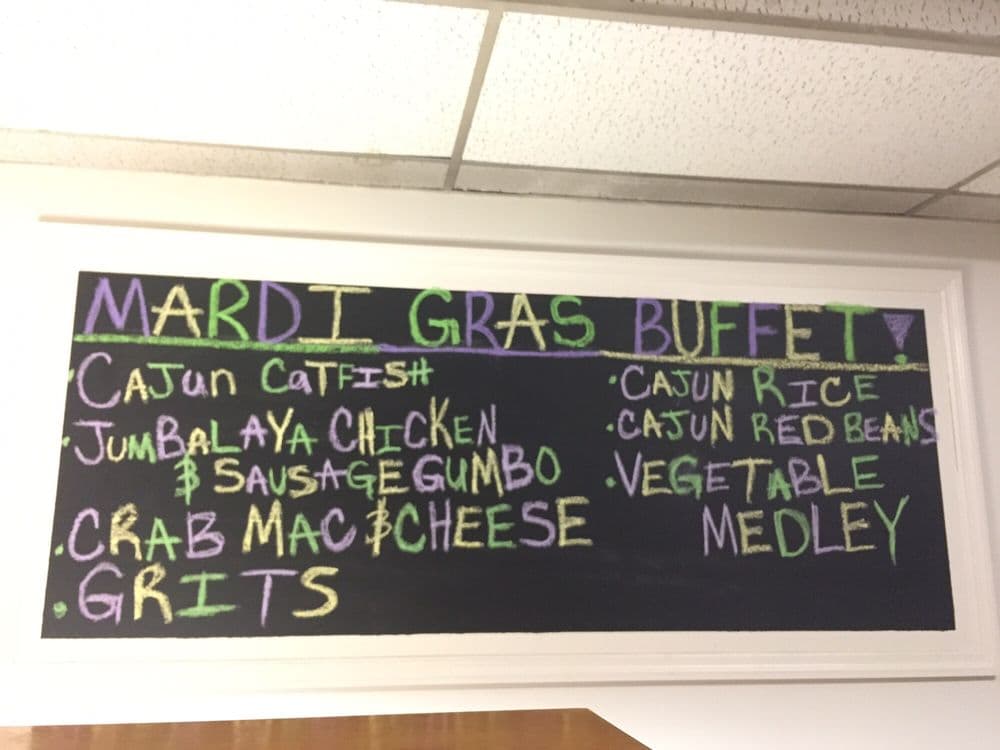 MARDI GRAS BUFFET!
·CAJUN CATFISH
·JUMBALAYA CHICKEN
& SAUSAGE GUMBO
·CRAB MAC & CHEESE
·GRITS
·CAJUN RICE
·CAJUN RED BEANS
·VEGETABLE
MEDLEY